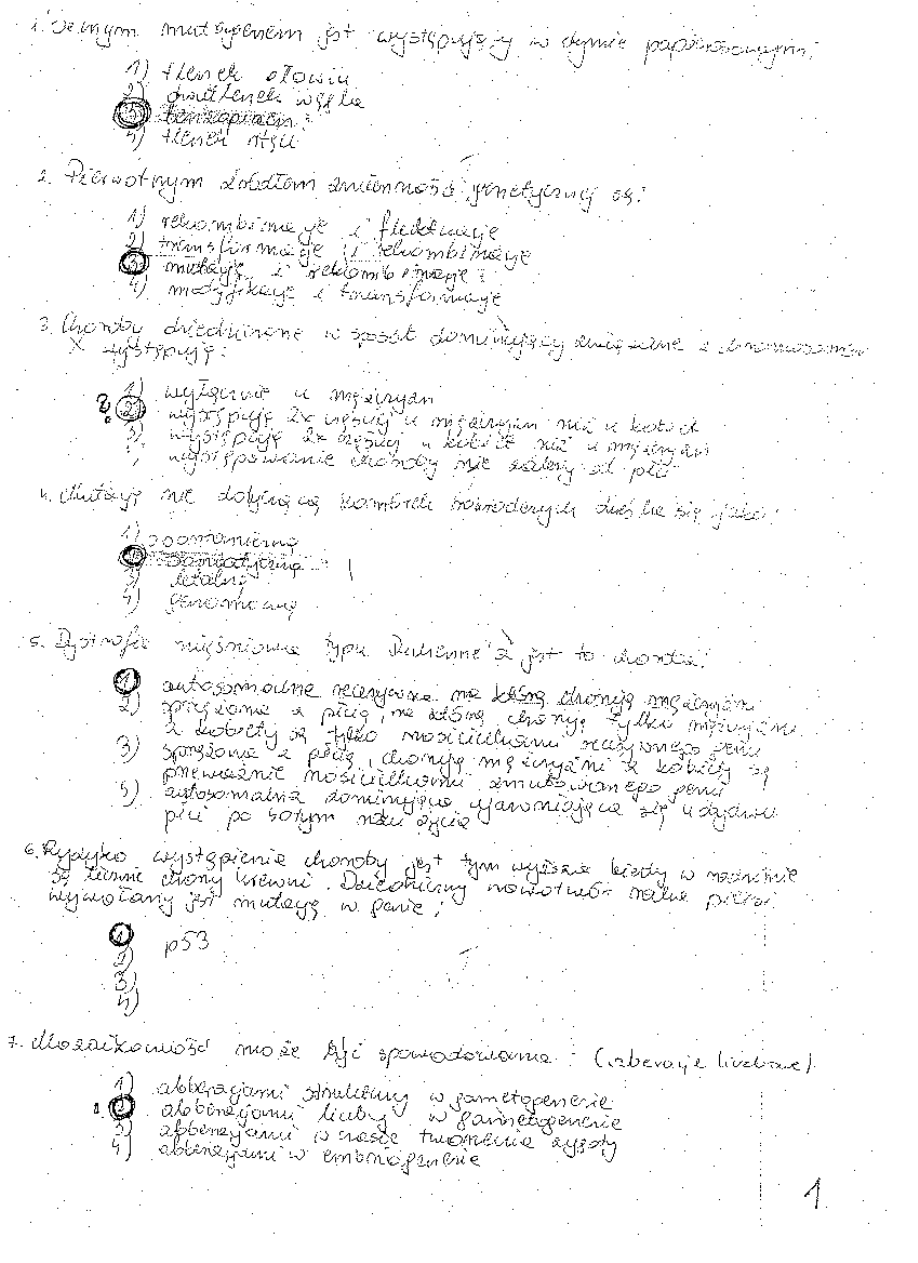 1. Silnym mutagenem jest występujący w dymie papierosowym:
1) tlenek ołowiu
2) dwutlenek węgla
3) benzopiren
4) tlenek rtęci
2. Pierwotnym źródłem zmienności genetycznej są:
1) rekombinacje i fluktuacje
2) transformacje i rekombinacje
3) mutacje i rekombinacje
4) modyfikacje i transformacje
3. Choroby dziedziczone w sposób dominujący związane z chromosomem
X występują:
1) wyłącznie u mężczyzn
? 2) występuję 2x częściej u mężczyzn niż u kobiet
3) występuję 2x częściej u kobiet niż u mężczyzn
występowanie choroby nie zależy od płci
4. Mutację nie dotyczącą komórek rozrodczych określa się jako:
1)
2) somatyczną
3) letalną
4) genomową
5. Dystrofia mięśniowa typu Duchenne'a jest to choroba:
1) autosomalna recesywna na którą chorują mężczyźni
2) sprzężona z płcią, na którą chorują tylko mężczyźni
a kobiety są tylko nosicielkami recesywnego genu
3) sprzężona z płcią, chorują mężczyźni a kobiety są
przeważnie nosicielkami zmutowanego genu
5) autosomalna dominująca ujawniająca się u obydwu
płci po 30tym roku życia
6. Ryzyko wystąpienia choroby jest tym wyższe kiedy w rodzinie
są liczni chorzy krewni. Dziedziczny nowotwór piersi
wywołany jest mutacją w genie:
1) p53
2)
3)
4)
7. Mozaikowość może być spowodowana: (aberracje liczbowe)
1) abberacjami struktury w gametogenezie
2) abberacjami liczby w gametogenezie
3) abberacjami w czasie tworzenia zygoty
4) abberacjami w embriogenezie
1